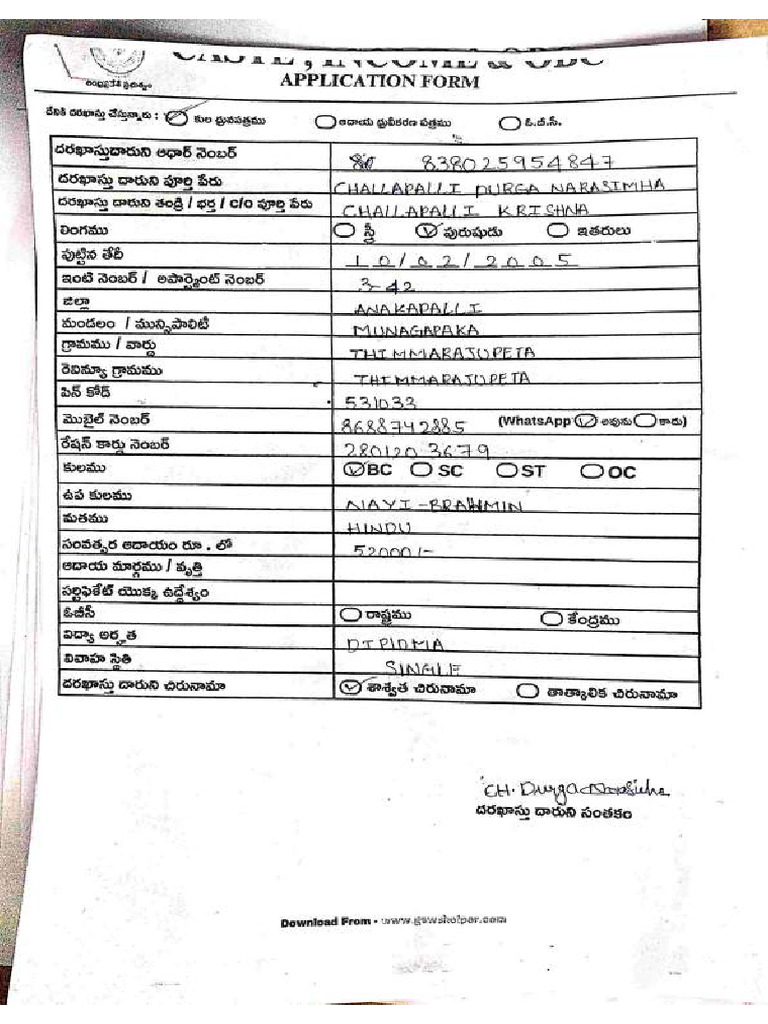 CASTE, INCOME & OBC
APPLICATION FORM
ఆంధ్రప్రదేశ్ ప్రభుత్వం
దేనికి దరఖాస్తు చేస్తున్నారు : కుల ధ్రువపత్రము ఆదాయ ధ్రువీకరణ పత్రము ఓ.బీ.సీ.
దరఖాస్తుదారుని ఆధార్ నెంబర్ 838025954847
దరఖాస్తు దారుని పూర్తి పేరు CHALLAPALLI DURGA NARASIMHA
దరఖాస్తు దారుని తండ్రి / భర్త / C/O పూర్తి పేరు CHALLAPALLI KRISHNA
లింగము స్త్రీ పురుషుడు ఇతరులు
పుట్టిన తేదీ 10/02/2005
ఇంటి నెంబర్ / అపార్ట్మెంట్ నెంబర్ 3-42
జిల్లా ANAKAPALLI
మండలం / మున్సిపాలిటీ MUNAGAPAKA
గ్రామము / వార్డు THIMMARAJUPETA
రెవిన్యూ గ్రామము THIMMARAJUPETA
పిన్ కోడ్ 531033
మొబైల్ నెంబర్ 8688742885 (WhatsApp అవును కాదు)
రేషన్ కార్డు నెంబర్ 2801203679
కులము BC SC ST OC
ఉప కులము NAYI-BRAHMIN
మతము HINDU
సంవత్సర ఆదాయం రూ . లో 52000/-
ఆదాయ మార్గము / వృత్తి
సర్టిఫికేట్ యొక్క ఉద్దేశ్యం
ఓబీసీ రాష్ట్రము కేంద్రము
విద్యా అర్హత DIPLOMA
వివాహ స్థితి SINGLE
దరఖాస్తు దారుని చిరునామా శాశ్వత చిరునామా తాత్కాలిక చిరునామా
CH. Durga
దరఖాస్తు దారుని సంతకం
Download From - www.gswshelper.com